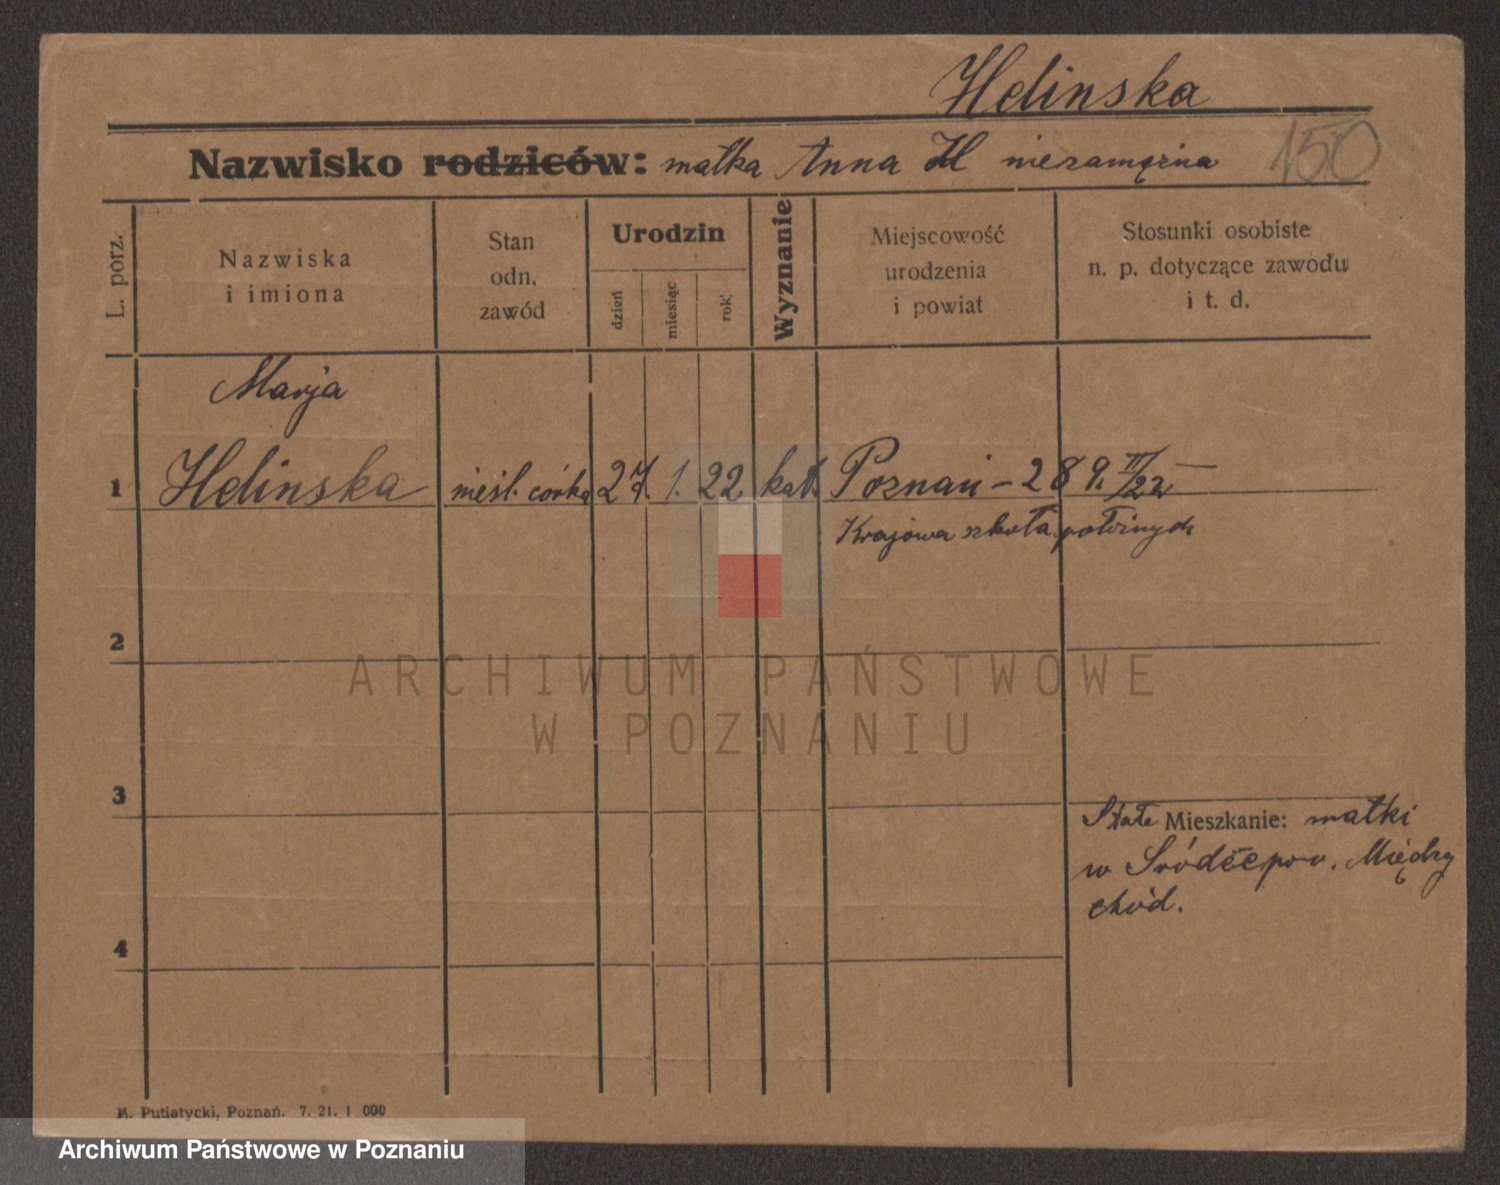 Helinska
Nazwisko rodziców: matka Anna H niezamężna 150
L. porz.
Nazwiska
i imiona
Stan
odn.
zawód
Urodzin
dzień
miesiąc
rok
Wyznanie
Miejscowość
urodzenia
i powiat
Stosunki osobiste
n. p. dotyczące zawodu
i t. d.
Marja
1 Helinska nieśl. córka 27. 1. 22 kat. Poznań - 289. III/22
Krajowa szkoła położnych
2
3
Stałe Mieszkanie: matki
w Śródce pow. Między
chód.
4
ARCHIWUM PAŃSTWOWE
W POZNANIU
M. Putiatycki, Poznań. 7. 21. 1 000
Archiwum Państwowe w Poznaniu